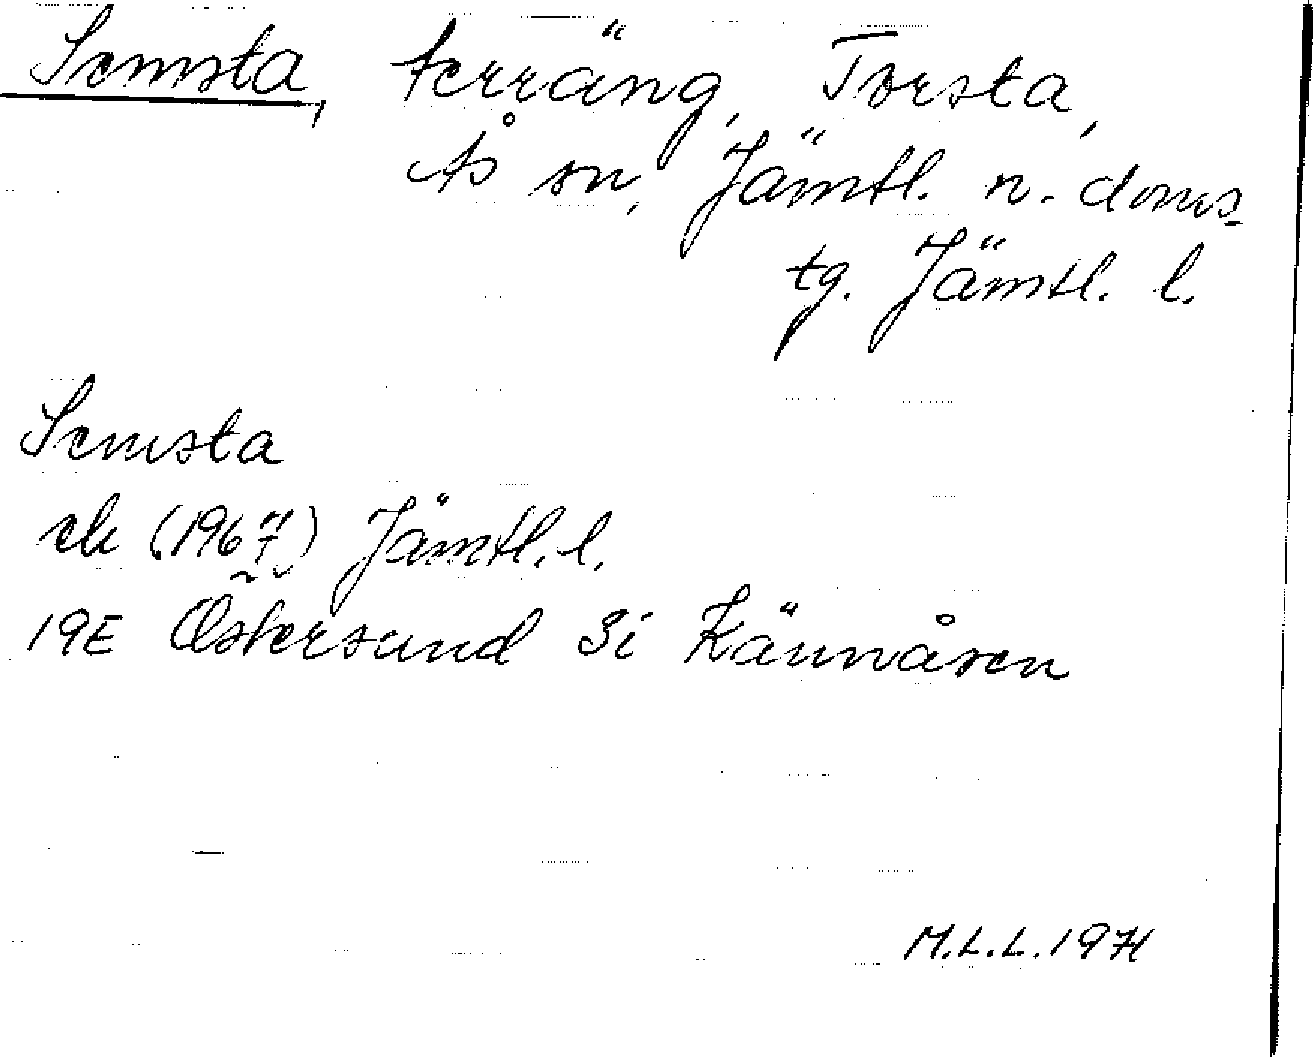 Semsta, terräng, Torsta,
Ås sn, Jämtl. n. doms-
tg. Jämtl. l.
Semsta
ek (1967) Jämtl. l.
19E Östersund 3i Kännåsen
M.L.L. 1971